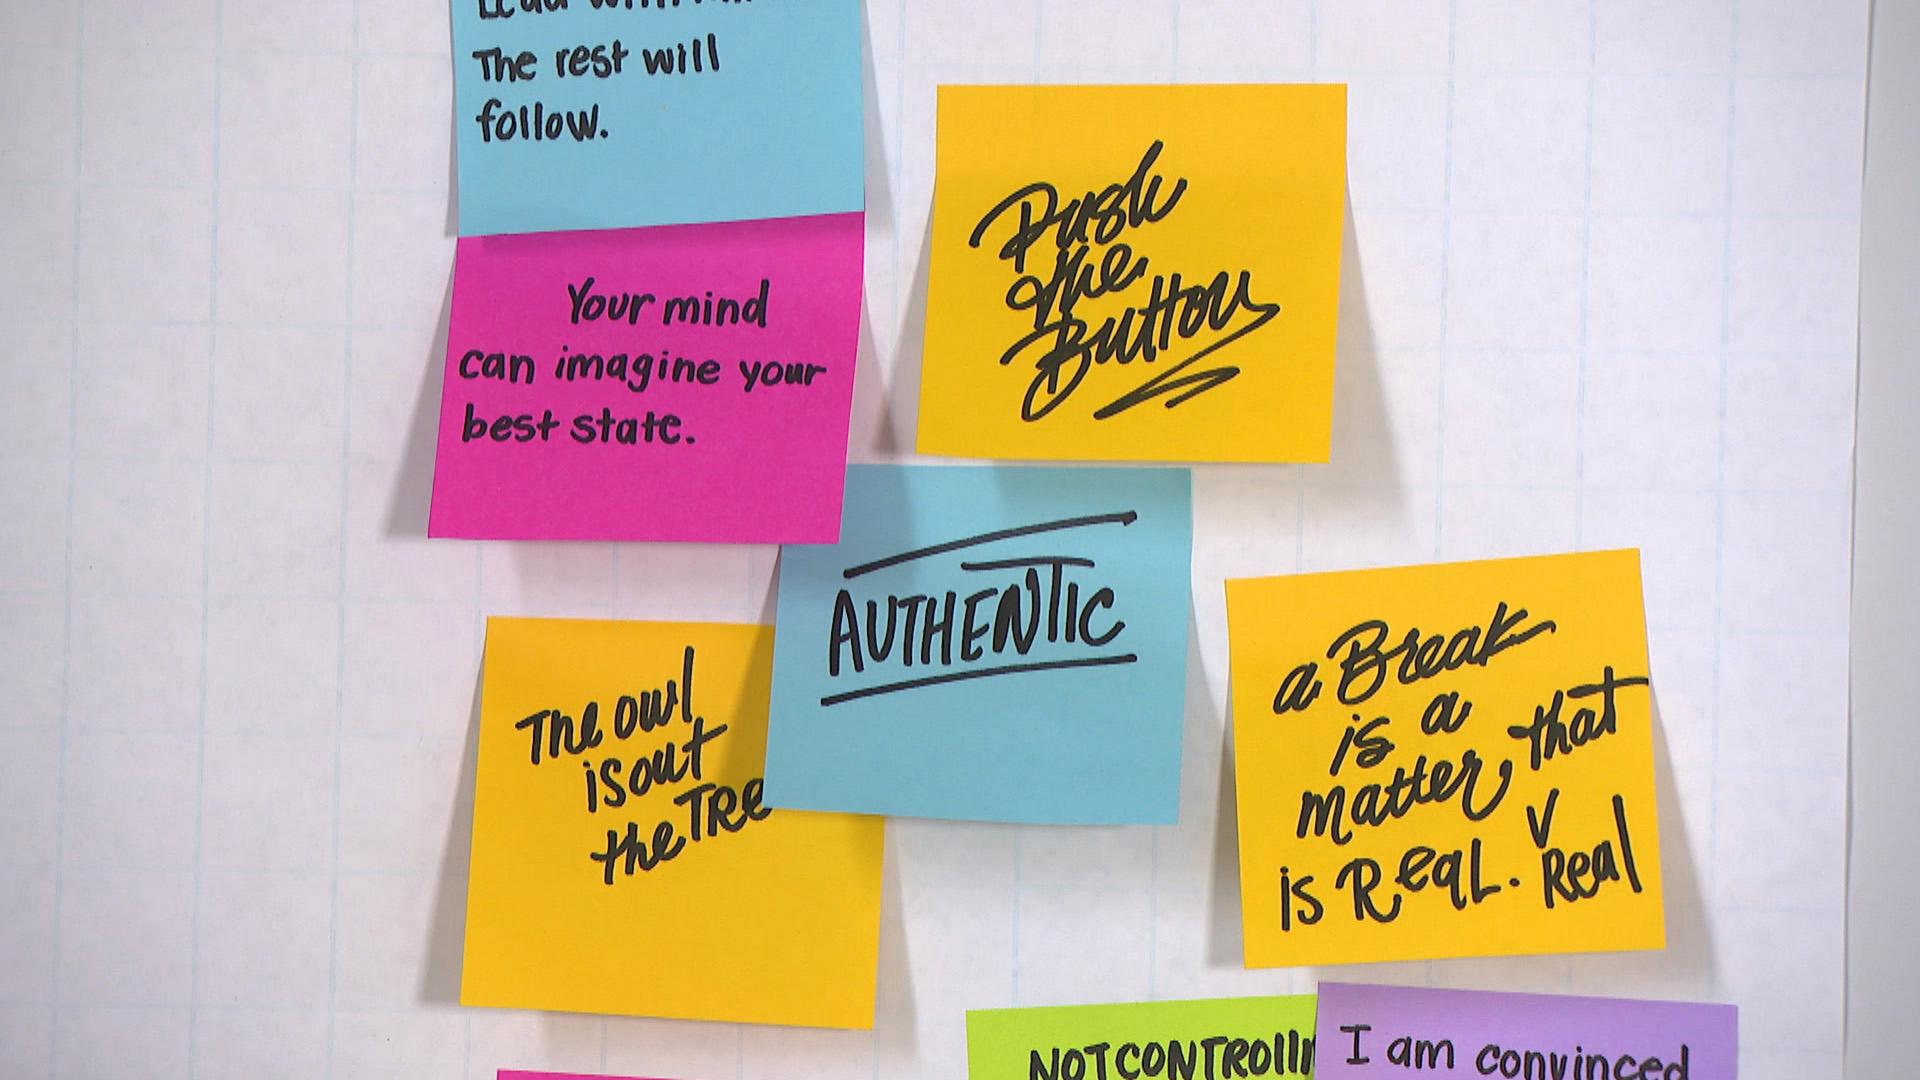 The rest will
follow.
Your mind
can imagine your
best state.
Push
the
Button
AUTHENTIC
The owl
is out
the TRE
a Break
is a
matter, that
is ReqL. V Real
NOT CONTROLLIN
I am convinced